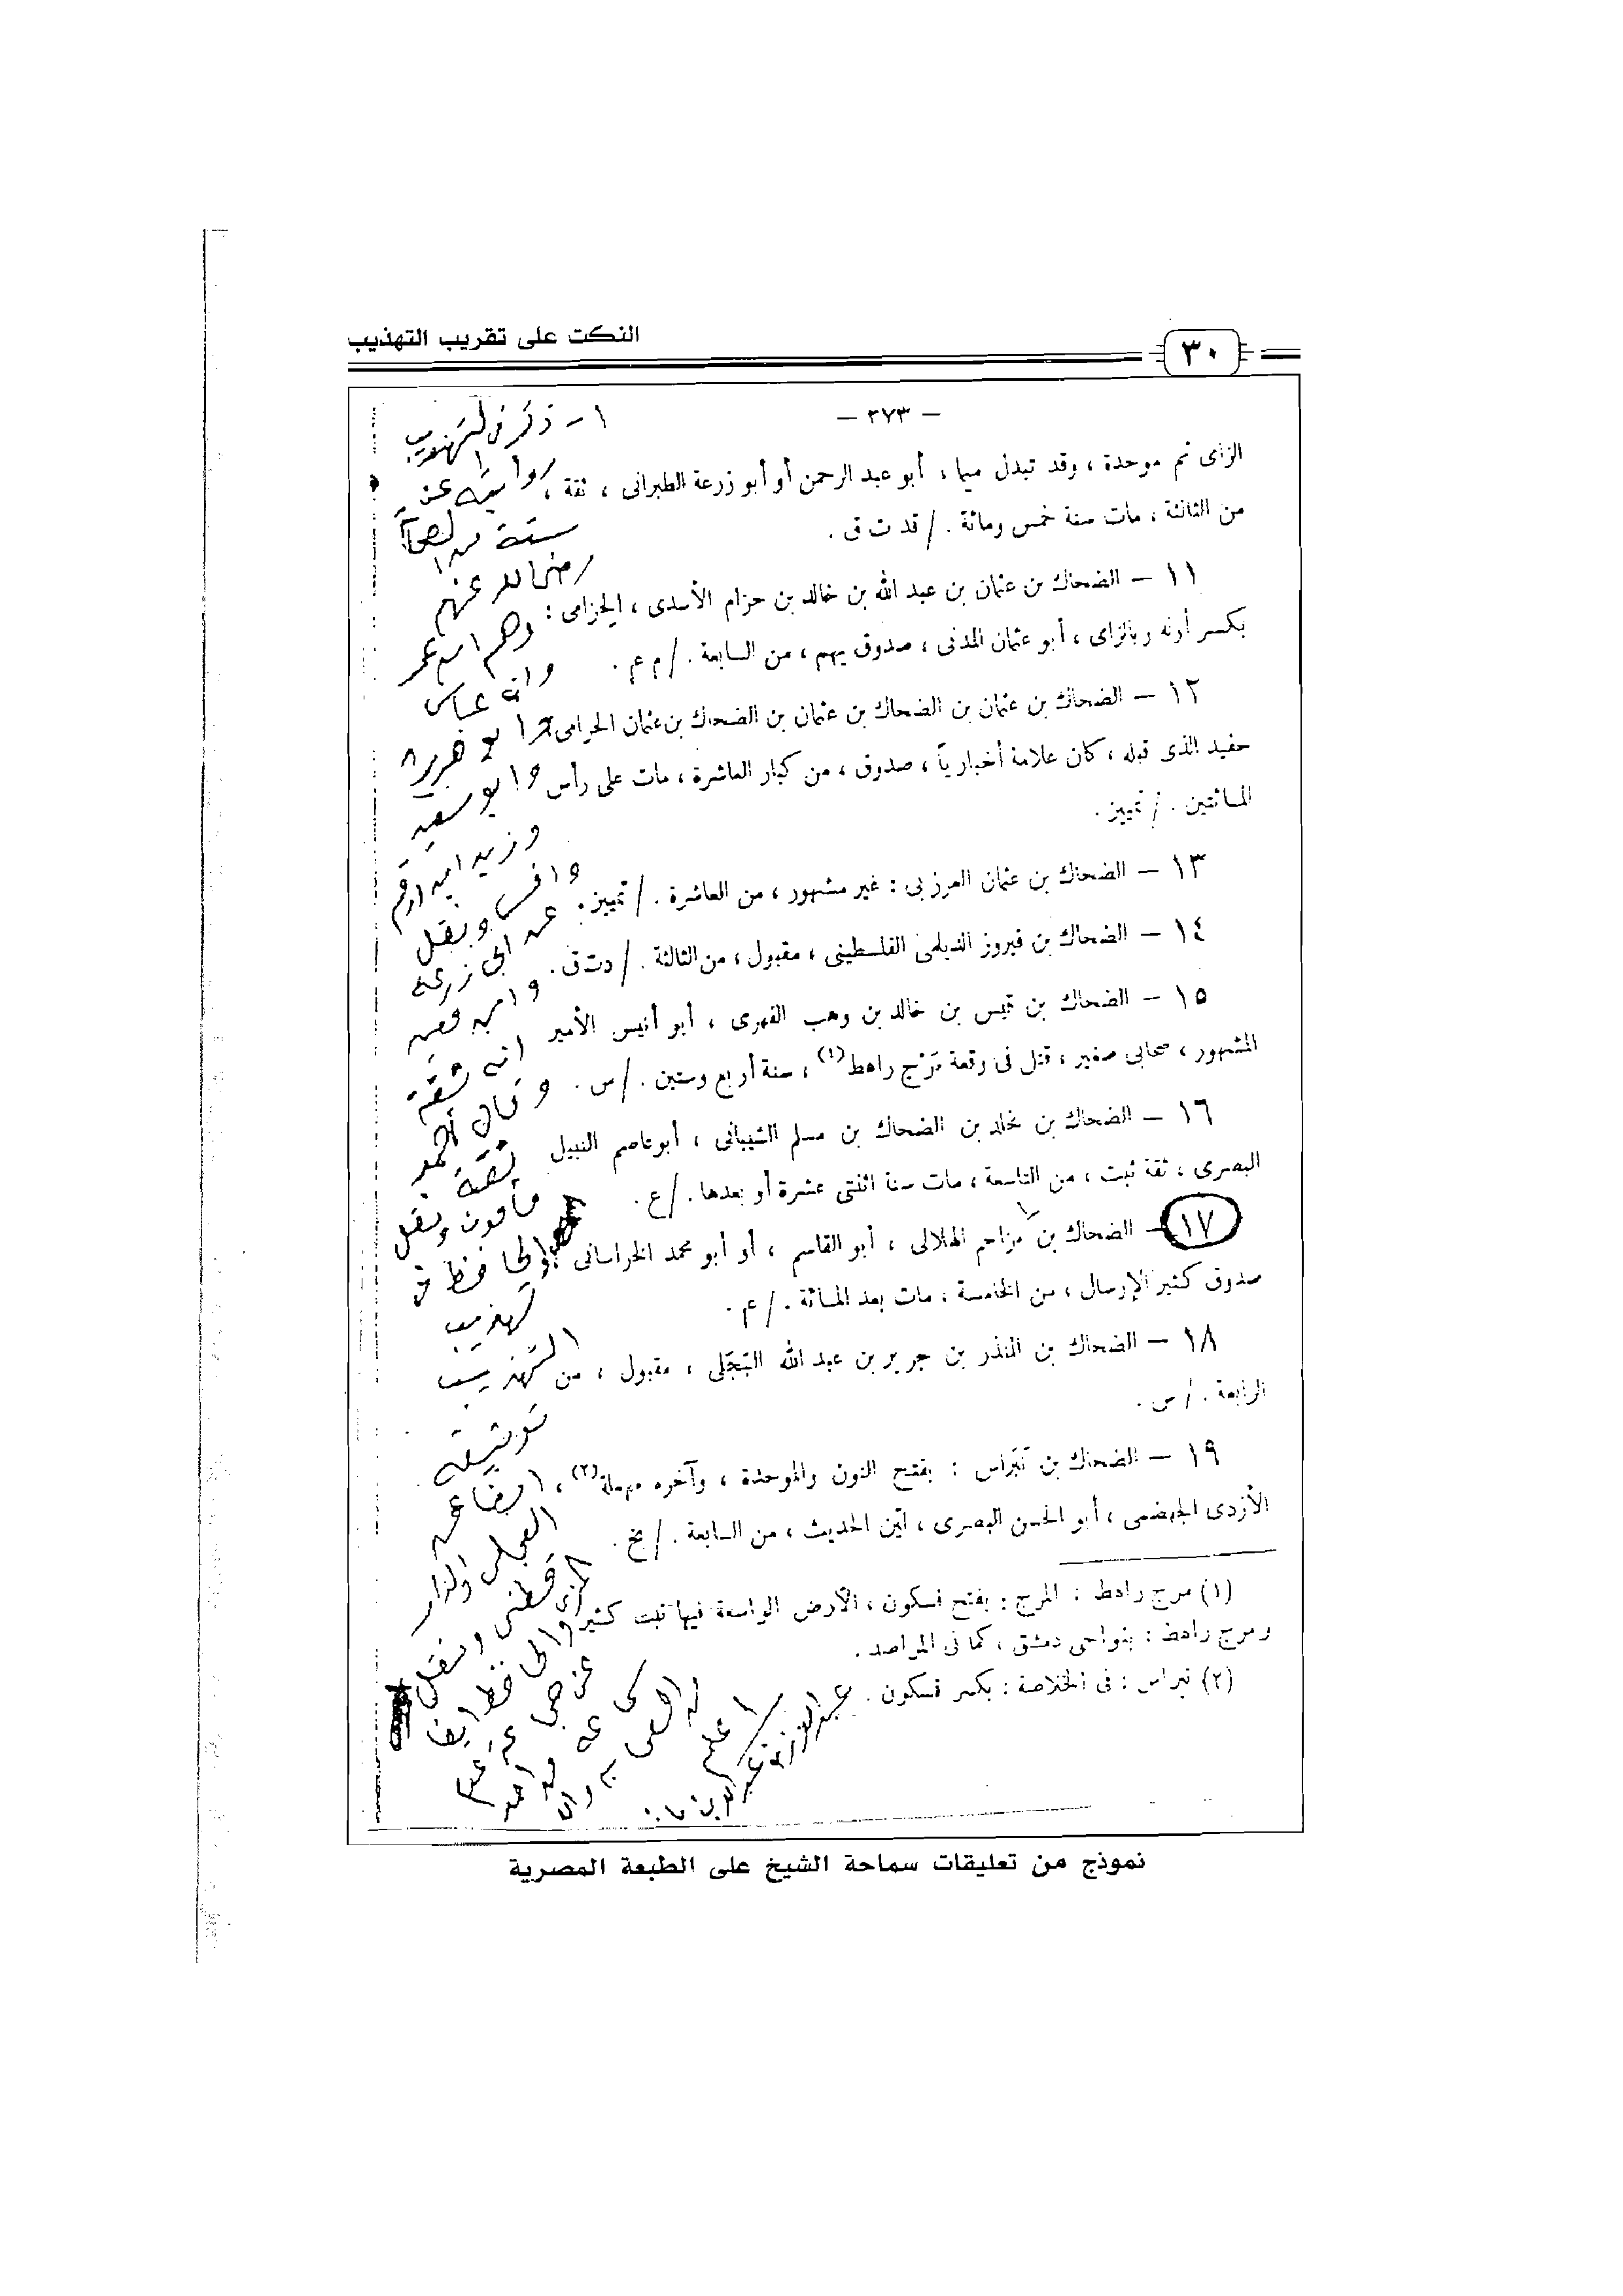 النكت على تقريب التهذيب
٣٠
— ٢٧٣ —
الزاى ثم موحدة ، وقد تبدل ميما ، أبو عبد الرحمن أو أبو زرعة الطبرانى ، ثقة ،
من الثالثة ، مات سنة خمس ومائة . / قد ت ق .
١١ — الضحاك بن عثمان بن عبد الله بن خالد بن حزام الأسدى ، الحِزامى :
بكسر أوله وبالزاى ، أبو عثمان المدنى ، صدوق يهم ، من السابعة . / م عم .
١٢ — الضحاك بن عثمان بن الضحاك بن عثمان بن الضحاك بن عثمان الحزامى
حفيد الذى قبله ، كان علامة أخبارياً ، صدوق ، من كبار العاشرة ، مات على رأس
المائتين . / تمييز .
١٣ — الضحاك بن عثمان العرزبى : غير مشهور ، من العاشرة . / تمييز .
١٤ — الضحاك بن فيروز الديلمى الفلسطينى ، مقبول ، من الثالثة . / د ت ق .
١٥ — الضحاك بن قيس بن خالد بن وهب الفهرى ، أبو أنيس الأمير
المشهور ، صحابى صغير ، قتل فى وقعة مَرْج راهط (١) ، سنة أربع وستين . / س .
١٦ — الضحاك بن مخلد بن الضحاك بن مسلم الشيبانى ، أبو عاصم النبيل
البصرى ، ثقة ثبت ، من التاسعة ، مات سنة اثنتى عشرة أو بعدها . / ع .
١٧ — الضحاك بن مزاحم الهلالى ، أبو القاسم ، أو أبو محمد الخراسانى
صدوق كثير الإرسال ، من الخامسة ، مات بعد المائة . / عم .
١٨ — الضحاك بن المنذر بن جرير بن عبد الله البَجَلى ، مقبول ، من
الرابعة . / س .
١٩ — الضحاك بن نَبَراس : بفتح النون والموحدة ، وآخره مهملة (٢) ،
الأزدى الجهضمى ، أبو الحسن البصرى ، لَيّن الحديث ، من السابعة . / بخ .
(١) مرج راهط : المرج : بفتح فسكون ، الأرض الواسعة فيها نبت كثير
ومرج راهط : بنواحى دمشق ، كما فى المراصد .
(٢) نبراس : فى الخلاصة : بكسر فسكون .
١ - ذكر فى التهذيب
روايته عن
ستة من الصحابة
رضى الله عنهم
وهم ابن عمر
وابن عباس
وأبو هريرة
وأبو سعيد
وزيد بن أرقم
وأنس ونقل
عن أبى زرعة
وابن معين
أنه ثقة
وقال أحمد
ثقة
مأمون ونقل
الحافظ فى
تهذيب
التهذيب
توثيقه
أيضا عن
العجلى والدار
قطنى ونقل
المزى والحافظ أيضا
نموذج من تعليقات سماحة الشيخ على الطبعة المصرية